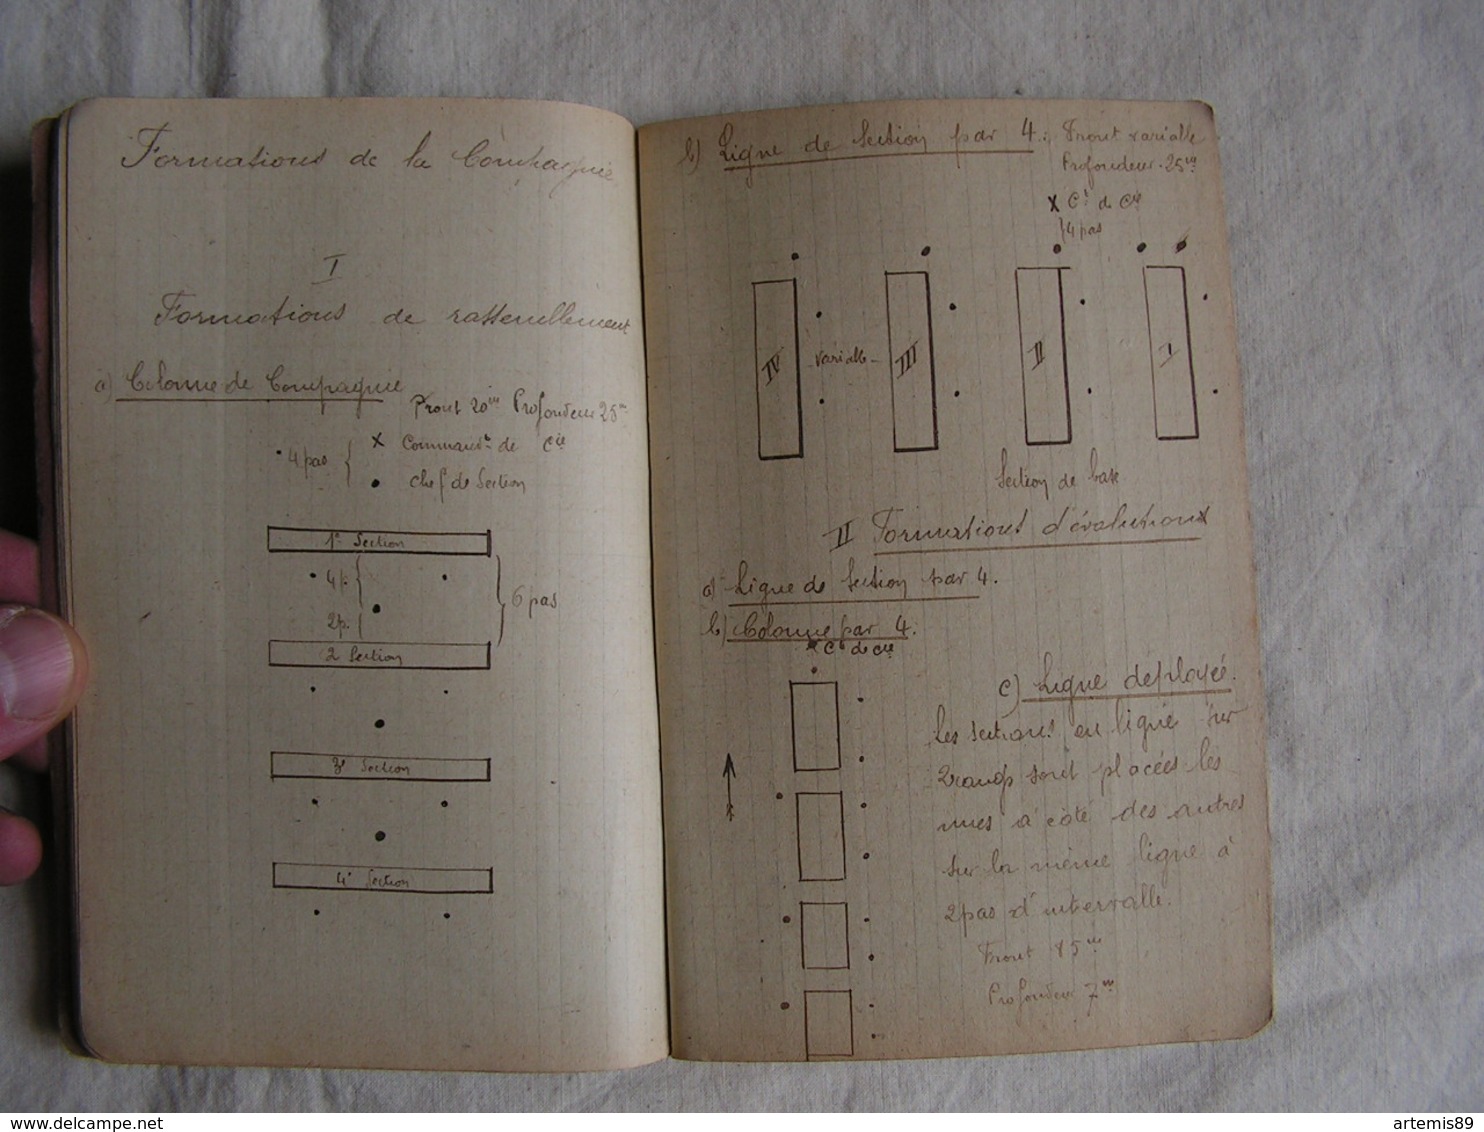 Formations de la Compagnie
I
Formations de rassemblement
a) Colonne de Compagnie
Front 20m Profondeur 25m
x Command.t de Cie
4 pas
chef de Section
1e Section
4p.
6 pas
2p.
2 Section
3e Section
4e Section
b) Ligne de Section par 4 : Front variable
Profondeur. 25m
x Ct de Cie
4 pas
IV
variable
III
II
I
Section de base
II Formations d'évolutions
a) Ligne de Section par 4.
b) Colonne par 4.
x Ct de cie
c) Ligne deployée.
Les sections en ligne sur
2 rangs sont placées les
unes à côté des autres
sur la même ligne à
2 pas d'intervalle.
Front 85m
Profondeur 7m
artemis89